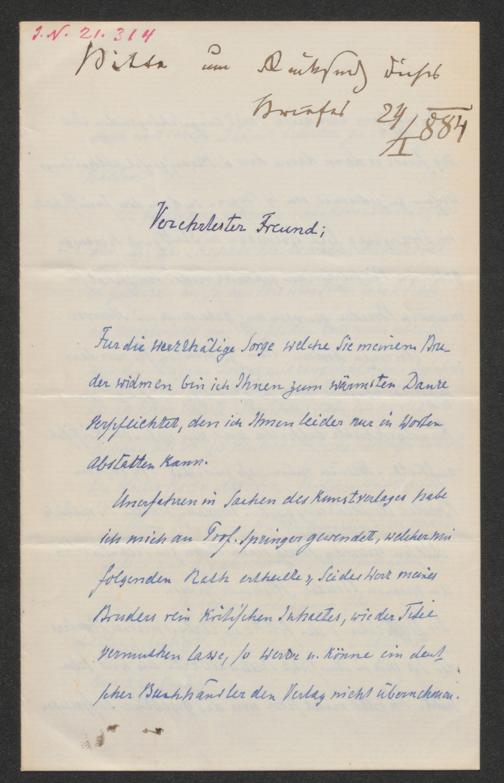 I.N. 21.314
Bitte um Rücksend. dieses
Briefes 24/II 884
Verehrtester Freund;
Für die werkthätige Sorge welche Sie meinem Bru-
der widmen bin ich Ihnen zum wärmsten Danke
verpflichtet, den ich Ihnen leider nur in Worten
abstatten kann.
Unerfahren in Sachen des Kunstverlages habe
ich mich an Prof. Springer gewendet, welcher mir
folgenden Rath ertheilte, Sei das Werk meines
Bruders rein kritischen Inhaltes, wie der Titel
vermuthen lasse, so werde u. könne ein deut
scher Buchhändler den Verlag nicht übernehmen.